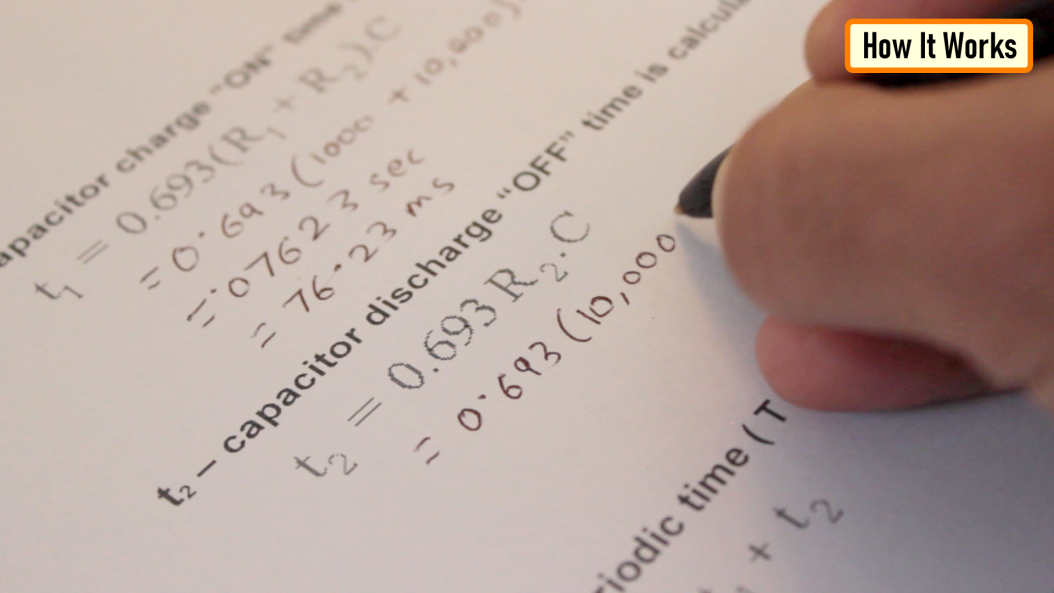 How It Works
capacitor charge "ON" time
t₁ = 0.693(R₁ + R₂).C
= 0.693(1000 + 10,000).
= .07623 sec
= 76.23 ms
t₂ – capacitor discharge "OFF" time is
t₂ = 0.693 R₂.C
= 0.693(10,000
time (T
+ t₂